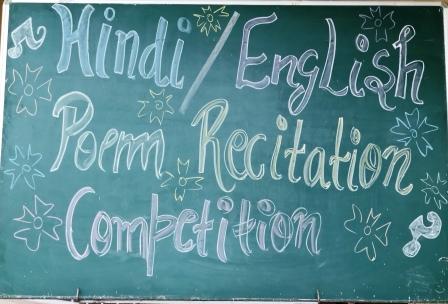 Hindi / English
Poem Recitation
Competition